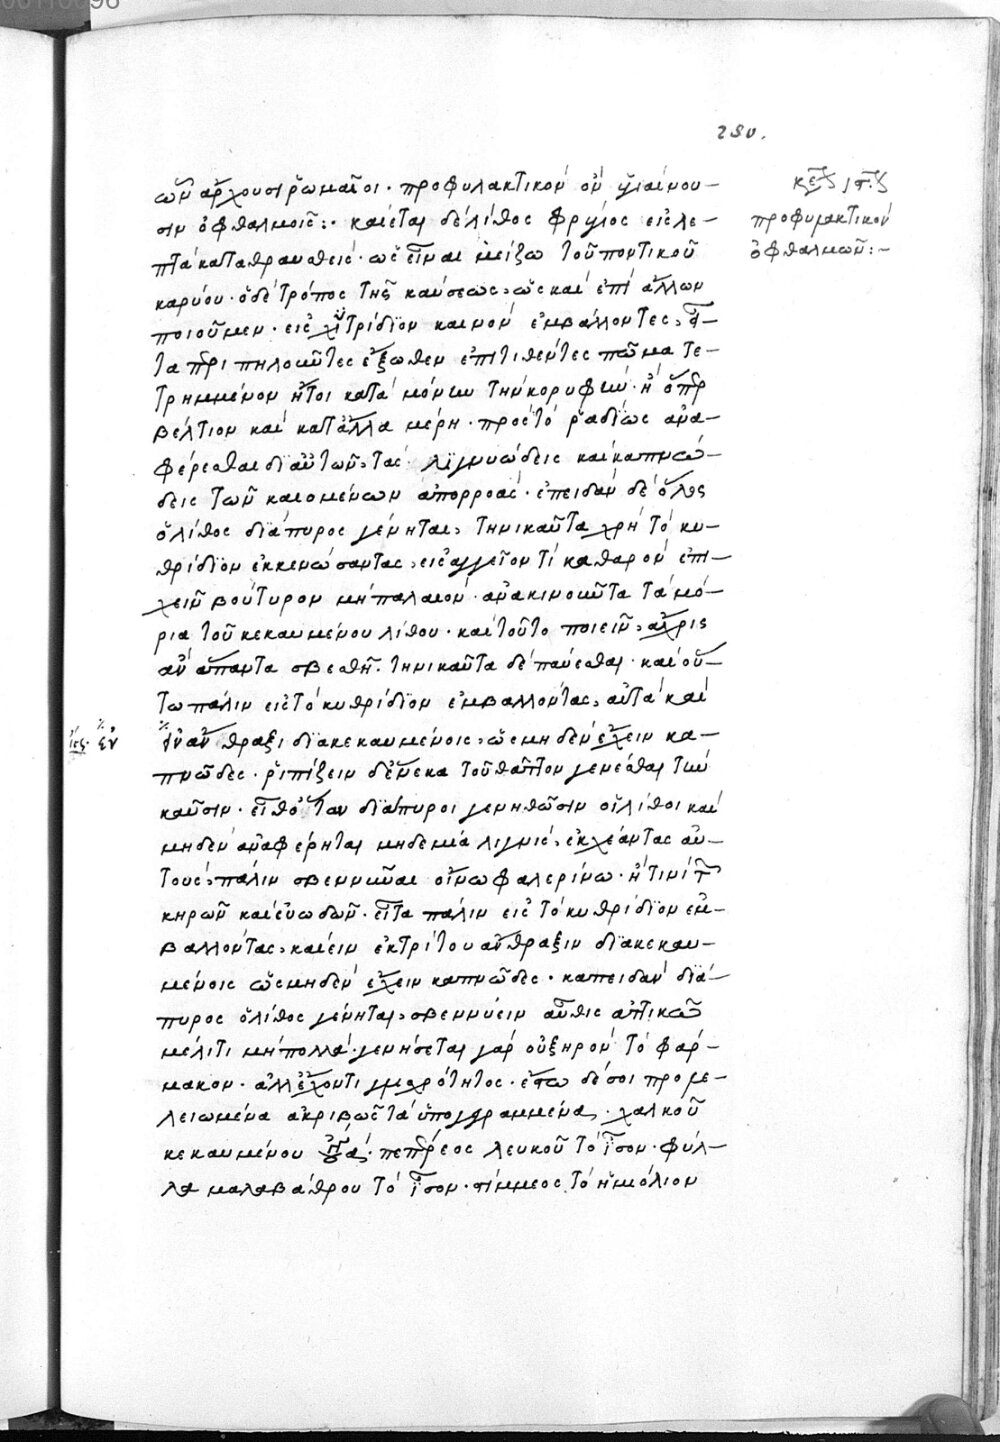 280.
ὧν ἄρχουσι ῥωμαῖοι · προφυλακτικὸν ὂν ὑγιαίνου–
σιν ὀφθαλμοῖς :· καίεται δὲ λίθος φρύγιος εἰς λε–
πτὰ καταθραυσθεὶς · ὡς εἶναι μείζω τοῦ ποντικοῦ
καρύου · ὁ δὲ τρόπος τῆς καύσεως, ὡς καὶ ἐπὶ ἄλλων
ποιοῦμεν · εἰς χυτρίδιον καινὸν ἐμβάλλοντες, εἶ–
τα περιπηλοῦντες ἔξωθεν ἐπιτιθέντες πῶμα τε–
τρημμένον ἤτοι κατὰ μόνην τὴν κορυφὴν · ἢ ὅπερ
βέλτιον καὶ κατ ἄλλα μέρη · πρὸς τὸ ῥαδίως ἀνα–
φέρεσθαι δι αὐτῶν, τὰς λιγνυώδεις καὶ καπνώ–
δεις τῶν καιομένων ἀπορροάς · ἐπειδὰν δὲ ὅλος
ὁ λίθος διάπυρος γένηται, τηνικαῦτα χρὴ τὸ κυ–
θρίδιον ἐκκενώσαντας, εἰς ἀγγεῖον τί καθαρὸν ἐπι–
χεῖν βούτυρον μὴ παλαιὸν · ἀνακινοῦντα τὰ μό–
ρια τοῦ κεκαυμένου λίθου · καὶ τοῦτο ποιεῖν, ἄχρις
ἂν ἅπαντα σβεσθῇ · τηνικαῦτα δὲ παύεσθαι · καὶ οὕ–
τω πάλιν εἰς τὸ κυθρίδιον ἐμβαλλόντας, αὐτὰ καὶ
ἄνθραξι διακεκαυμένοις, ὡς μηδὲν ἔχειν κα–
πνῶδες · ῥιπίζειν δ ἕνεκα τοῦ θᾶττον γενέσθαι τὴν
καῦσιν · εἶθ ὅταν διάπυροι γενηθῶσιν οἱ λίθοι καὶ
μηδὲν ἀναφέρηται μηδεμία λιγνὺς, ἐκχέαντας αὐ–
τοὺς, πάλιν σβεννῦναι οἴνω φαλερίνω · ἤ τινι τῶν
κηρῶν καὶ εὐωδῶν · εἶτα πάλιν εἰς τὸ κυθρίδιον ἐμ–
βαλλόντας, καίειν ἐκ τρίτου ἄνθραξιν διακεκαυ–
μένοις ὡς μηδὲν ἔχειν καπνῶδες · κἀπειδὰν διά–
πυρος ὁ λίθος γένηται, σβεννύειν αὖθις ἀττικῶ
μέλιτι μὴ πολλὰ · γενήσεται γὰρ οὐ ξηρὸν τὸ φάρ–
μακον · ἀλλ ἔχον τι γλισχρότητος · ἔστω δέ σοι προ με–
λειωμένα ἀκριβῶς τὰ ὑπογεγραμμένα, · χαλκοῦ
κεκαυμένου · πεπέρεος λευκοῦ τὸ ἴσον · φύλ–
λα μαλαβάθρου τὸ ἴσον · στίμμεος τὸ ἡμιόλιον
προφυλακτικὸν
ὀφθαλμῶν :–